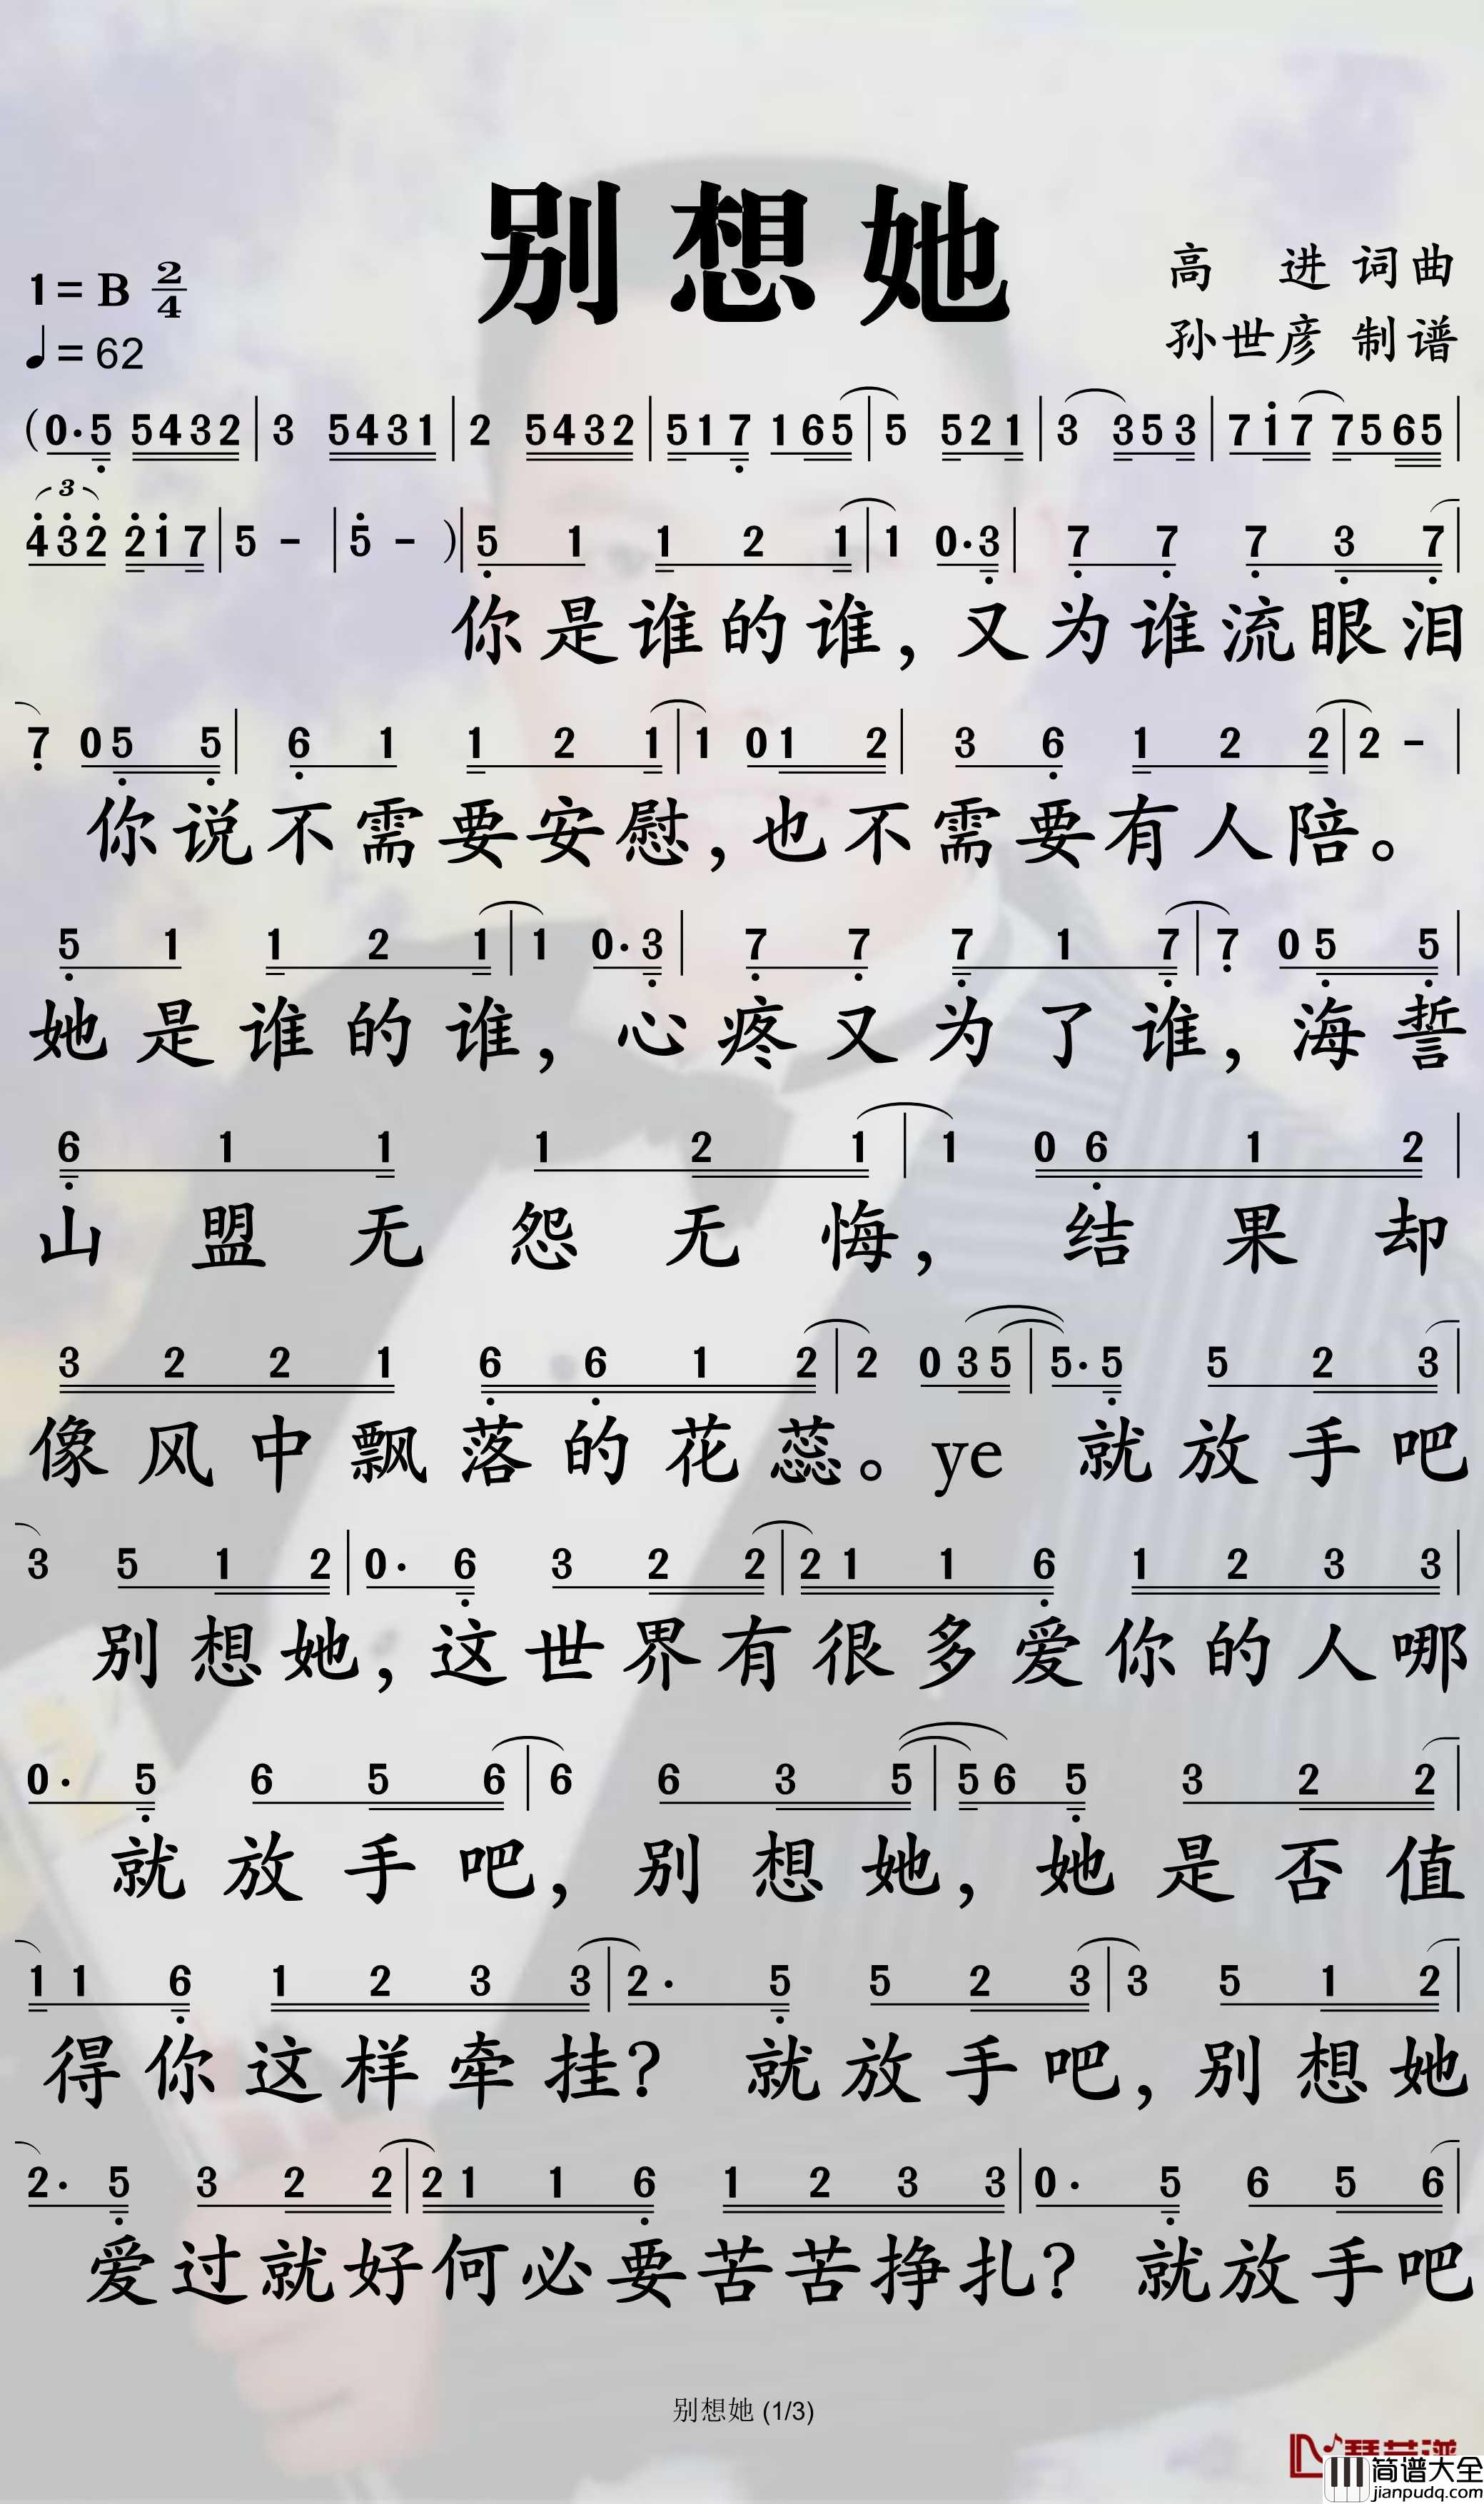 别想她
1=B 2/4
♩=62
高 进 词曲
孙世彦 制谱
(0·5 5432|3 5431|2 5432|517 165|5 521|3 353|717 7565|
3
432 217|5 -|5 -)|5 1 1 2 1|1 0·3|7 7 7 3 7|
你是谁的谁,又为谁流眼泪
7 05 5|6 1 1 2 1|1 01 2|3 6 1 2 2|2 -|
你说不需要安慰,也不需要有人陪。
5 1 1 2 1|1 0·3|7 7 7 1 7|7 05 5|
她是谁的谁,心疼又为了谁,海誓
6 1 1 1 2 1|1 06 1 2|
山盟无怨无悔,结果却
3 2 2 1 6 6 1 2|2 035|5·5 5 2 3|
像风中飘落的花蕊。ye 就放手吧
3 5 1 2|0·6 3 2 2|21 1 6 1 2 3 3|
别想她,这世界有很多爱你的人哪
0·5 6 5 6|6 6 3 5|56 5 3 2 2|
就放手吧,别想她,她是否值
11 6 1 2 3 3|2·5 5 2 3|3 5 1 2|
得你这样牵挂? 就放手吧,别想她
2·5 3 2 2|21 1 6 1 2 3 3|0·5 6 5 6|
爱过就好何必要苦苦挣扎? 就放手吧
别想她 (1/3)
简谱大全
jianpudq.com